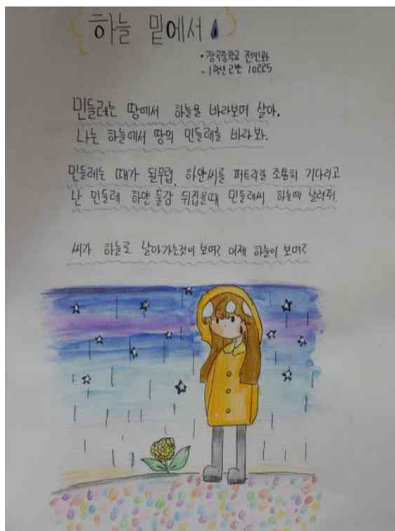 하늘 밑에서
• 장곡중학교 전민화
- 1학년 2반 10225
민들레는 땅에서 하늘을 바라보며 살아.
나는 하늘에서 땅의 민들레를 바라봐.
민들레는 때가 될무렵, 하얀씨를 퍼트리려 조용히 기다리고
난 민들레 하얀 물감 뒤집쓸때 민들레씨 하늘에 날려줘.
씨가 하늘로 날아가는것이 보여? 이제 하늘이 보여?